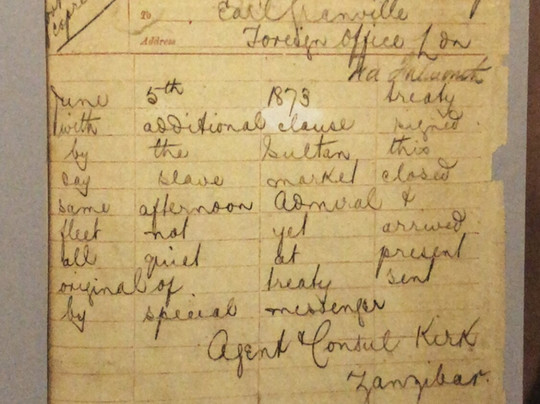 To Earl Granville
Address Foreign Office Ldn
June 5th 1873 treaty
with additional clause signed
by the Sultan this
cay slave market closed
same afternoon Admiral &
fleet not yet arrived
all quiet at present
original of treaty sent
by special messenger
Agent & Consul Kirk
Zanzibar.